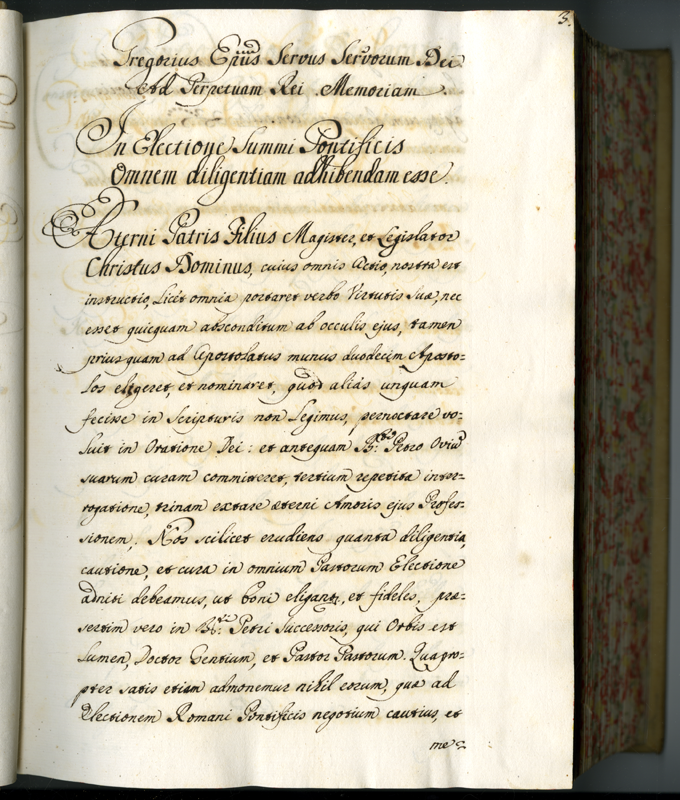 3.
Gregorius Ejus Servus Servorum Dei
Ad Perpetuam Rei Memoriam
In Electione Summi Pontificis
Omnem diligentiam adhibendam esse.
Æterni Patris Filius Magister, et Legislator
Christus Dominus, cuius omnis Actio, nostra est
instructio, Licit omnia portaret verbo Virtutis Suæ, nec
esset quicquam absconditum ab occulis ejus, tamen
prius quam ad Apostolatus munus duodecim Aposto=
los eligeret, et nominaret, quod aliàs unquam
fecisse in Scripturis non legimus, pernoctare vo=
luit in Oratione Dei: et antequam B.to Petro Oviū
suarum curam committeret, tertium repetita inter=
rogatione, trinam extare æterni Amoris ejus Profes=
sionem. Nos scilicet erudiens quanta diligentia,
cautione, et cura in omnium Pastorum Electione
adniti debeamus, ut boni eligant, et fideles, præ=
sertim vero in B.ti Petri Successoris, qui Orbis est
lumen, Doctor Gentium, et Pastor Pastorum. Quapro=
pter satis etiam admonemur nihil eorum, quæ ad
Electionem Romani Pontificis negotium cautius, et
me=